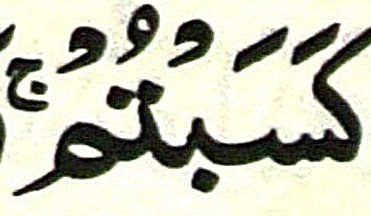 كَسَبْتُمْ ۚ